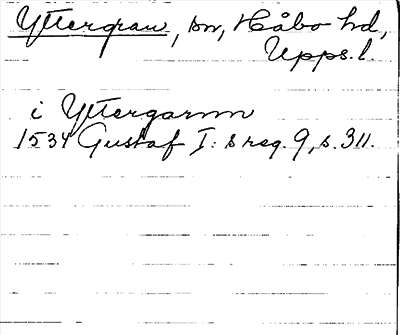 Yttergran, sn, Håbo hd,
Upps. l.
i Yttergarnn
1534 Gustaf I:s reg. 9, s. 311.